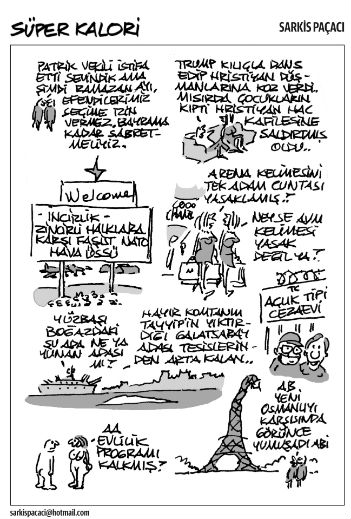 SÜPER KALORİ
SARKİS PAÇACI
PATRİK VEKİLİ İSTİFA
ETTİ SEVİNDİK AMA
ŞİMDİ RAMAZAN AYI,
EFENDİLERİMİZ
SEÇİME İZİN
VERMEZ, BAYRAMA
KADAR SABRET-
MELİYİZ.
TRUMP KILIÇLA DANS
EDİP HRİSTİYAN DÜŞ-
MANLARINA KOZ VERDİ.
MISIRDA ÇOCUKLARIN
KIPTİ HRİSTİYAN HAC
KAFİLESİNE
SALDIRMIŞ
OLDU..
Welcome
- İNCİRLİK -
ZİNCİRLİ HALKLARA
KARŞI FAŞİST NATO
HAVA ÜSSÜ
ARENA KELİMESİNİ
TEK ADAM CUNTASI
YASAKLAMIŞ?
COCO
CHANEL
NEYSE AVM
KELİMESİ
YASAK
DEĞİL YA?
TC
AÇIK TİPİ
CEZAEVİ
YÜZBAŞI
BOĞAZDAKİ
ŞU ADA NE YA
YUNAN ADASI
MI?
HAYIR KOMTANIM
TAYYİP'İN YIKTIR-
DIĞI GALATSARAY
ADASI TESİSLERİN-
DEN ARTA KALAN..
AA
EVLİLİK
PROGRAMI
KALKMIŞ?
ABİ
YENİ
OSMANLIYI
KARŞISINDA
GÖRÜNCE
YUMUŞADI ABİ
sarkispacaci@hotmail.com